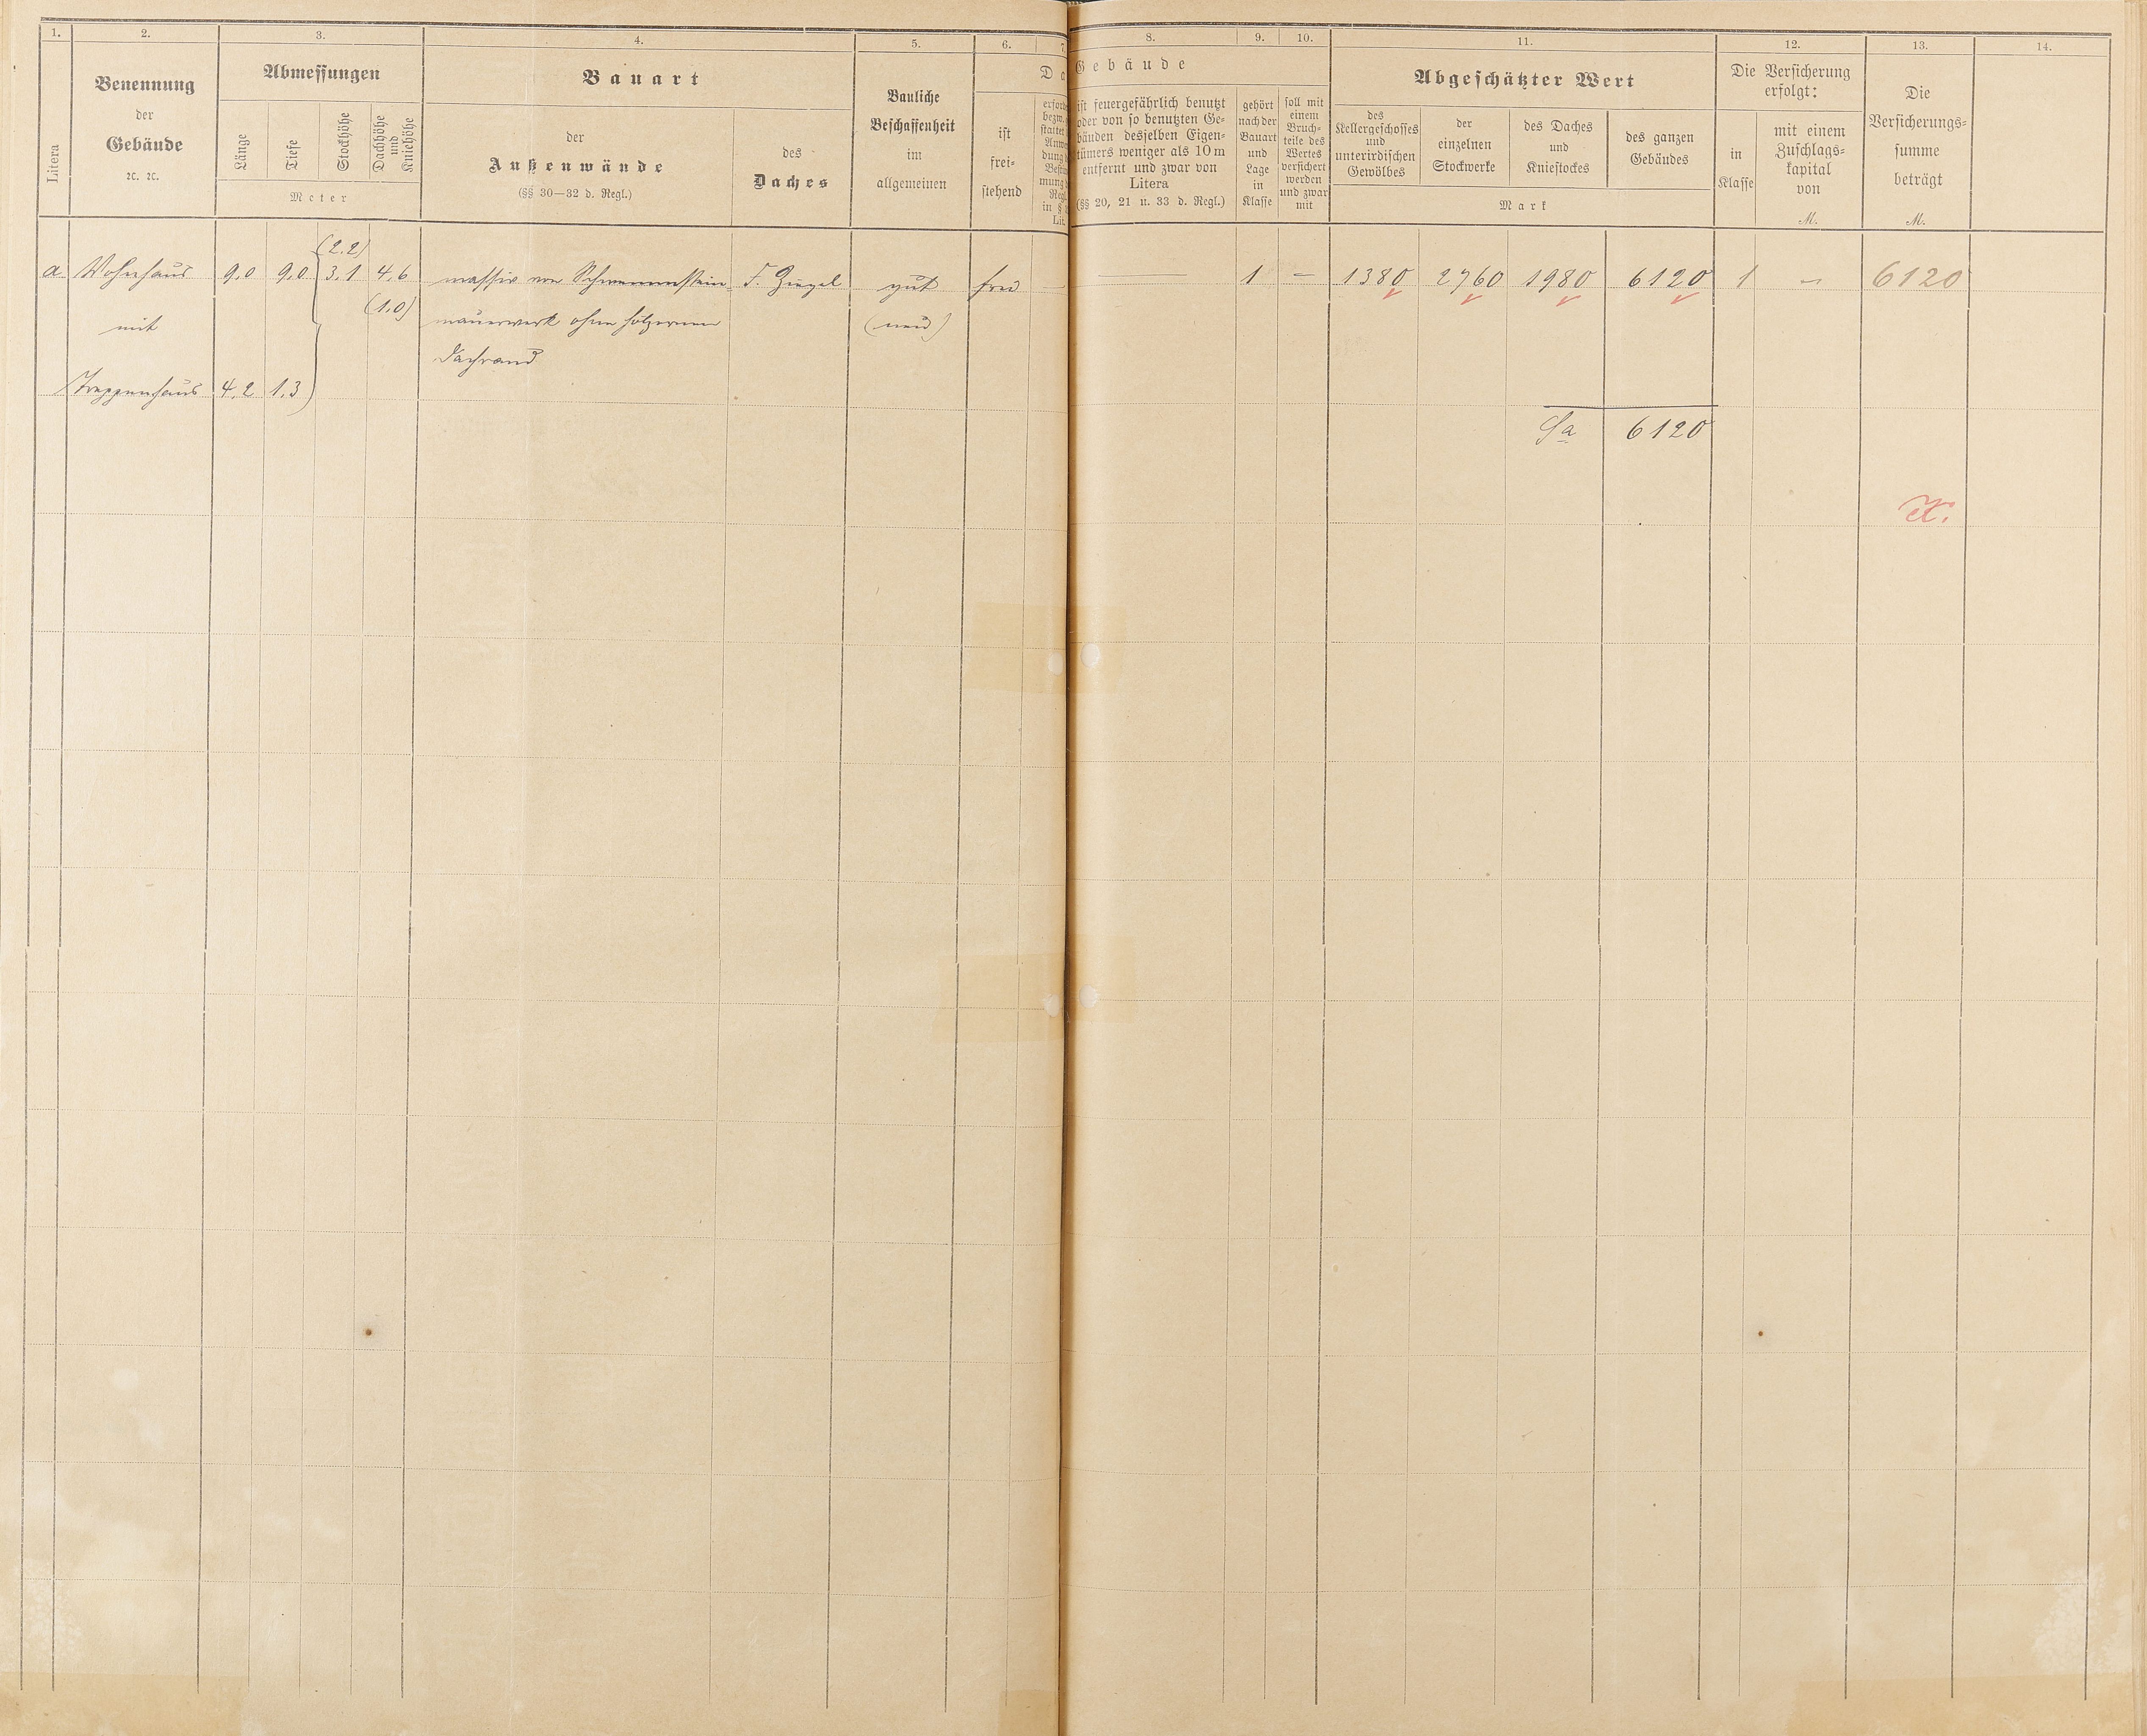 1. 2. 3. 4. 5. 6. 7. 8. 9. 10. 11. 12. 13. 14.
Litera
Benennung
der
Gebäude
ꝛc. ꝛc.
Abmessungen
Länge
Tiefe
Stockhöhe
Dachhöhe
und
Kniehöhe
Meter
Bauart
der
Außenwände
(§§ 30—32 d. Regl.)
des
Daches
Bauliche
Beschaffenheit
im
allgemeinen
ist
frei-
stehend
Gebäude
ist feuergefährlich benutzt
oder von so benutzten Ge-
bäuden desselben Eigen-
tümers weniger als 10 m
entfernt und zwar von
Litera
(§§ 20, 21 u. 33 d. Regl.)
gehört
nach der
Bauart
und
Lage
in
Klasse
soll mit
einem
Bruch-
teile des
Wertes
versichert
werden
und zwar
mit
Abgeschätzter Wert
des
Kellergeschosses
und
unterirdischen
Gewölbes
der
einzelnen
Stockwerke
des Daches
und
Kniestockes
des ganzen
Gebäudes
Mark
Die Versicherung
erfolgt:
in
Klasse
mit einem
Zuschlags-
kapital
von
M.
Die
Versicherungs-
summe
beträgt
M.
(2.2)
a. Wohnhaus 9,0 9,0 3,1 4,6 massiv von Schwemmstein- F. Ziegel gut frei — — 1 — 1380 2760 1980 6120 1 — 6120
(1,0)
mit mauerwerk ohne hölzernen (neu)
Dachrand
Treppenhaus 4,2 1,3
Sa 6120